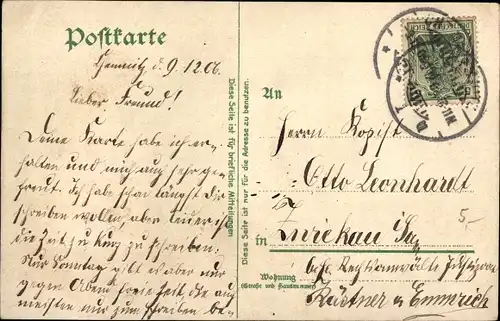 Postkarte
Chemnitz d. 9.12.06.
Lieber Freund!
Deine Karte habe ich er-
halten und mich auch sehr ge-
freut. Ich habe schon längst Dir
schreiben wollen, aber leider ist
die Zeit zu kurz zu schreiben.
Nur Sonntag gibt es aber nur
gegen Abend freie Zeit, die auch
meistens nur zum schreiben be-
Diese Seite ist für briefliche Mitteilungen
Diese Seite ist nur für die Adresse zu benutzen.
An
Herrn Kopist
Otto Leonhardt
in Zwickau i/Sa.
Wohnung
(Straße und Hausnummer)
Rechtsanwälte
Küstner & Emmrich
5,-